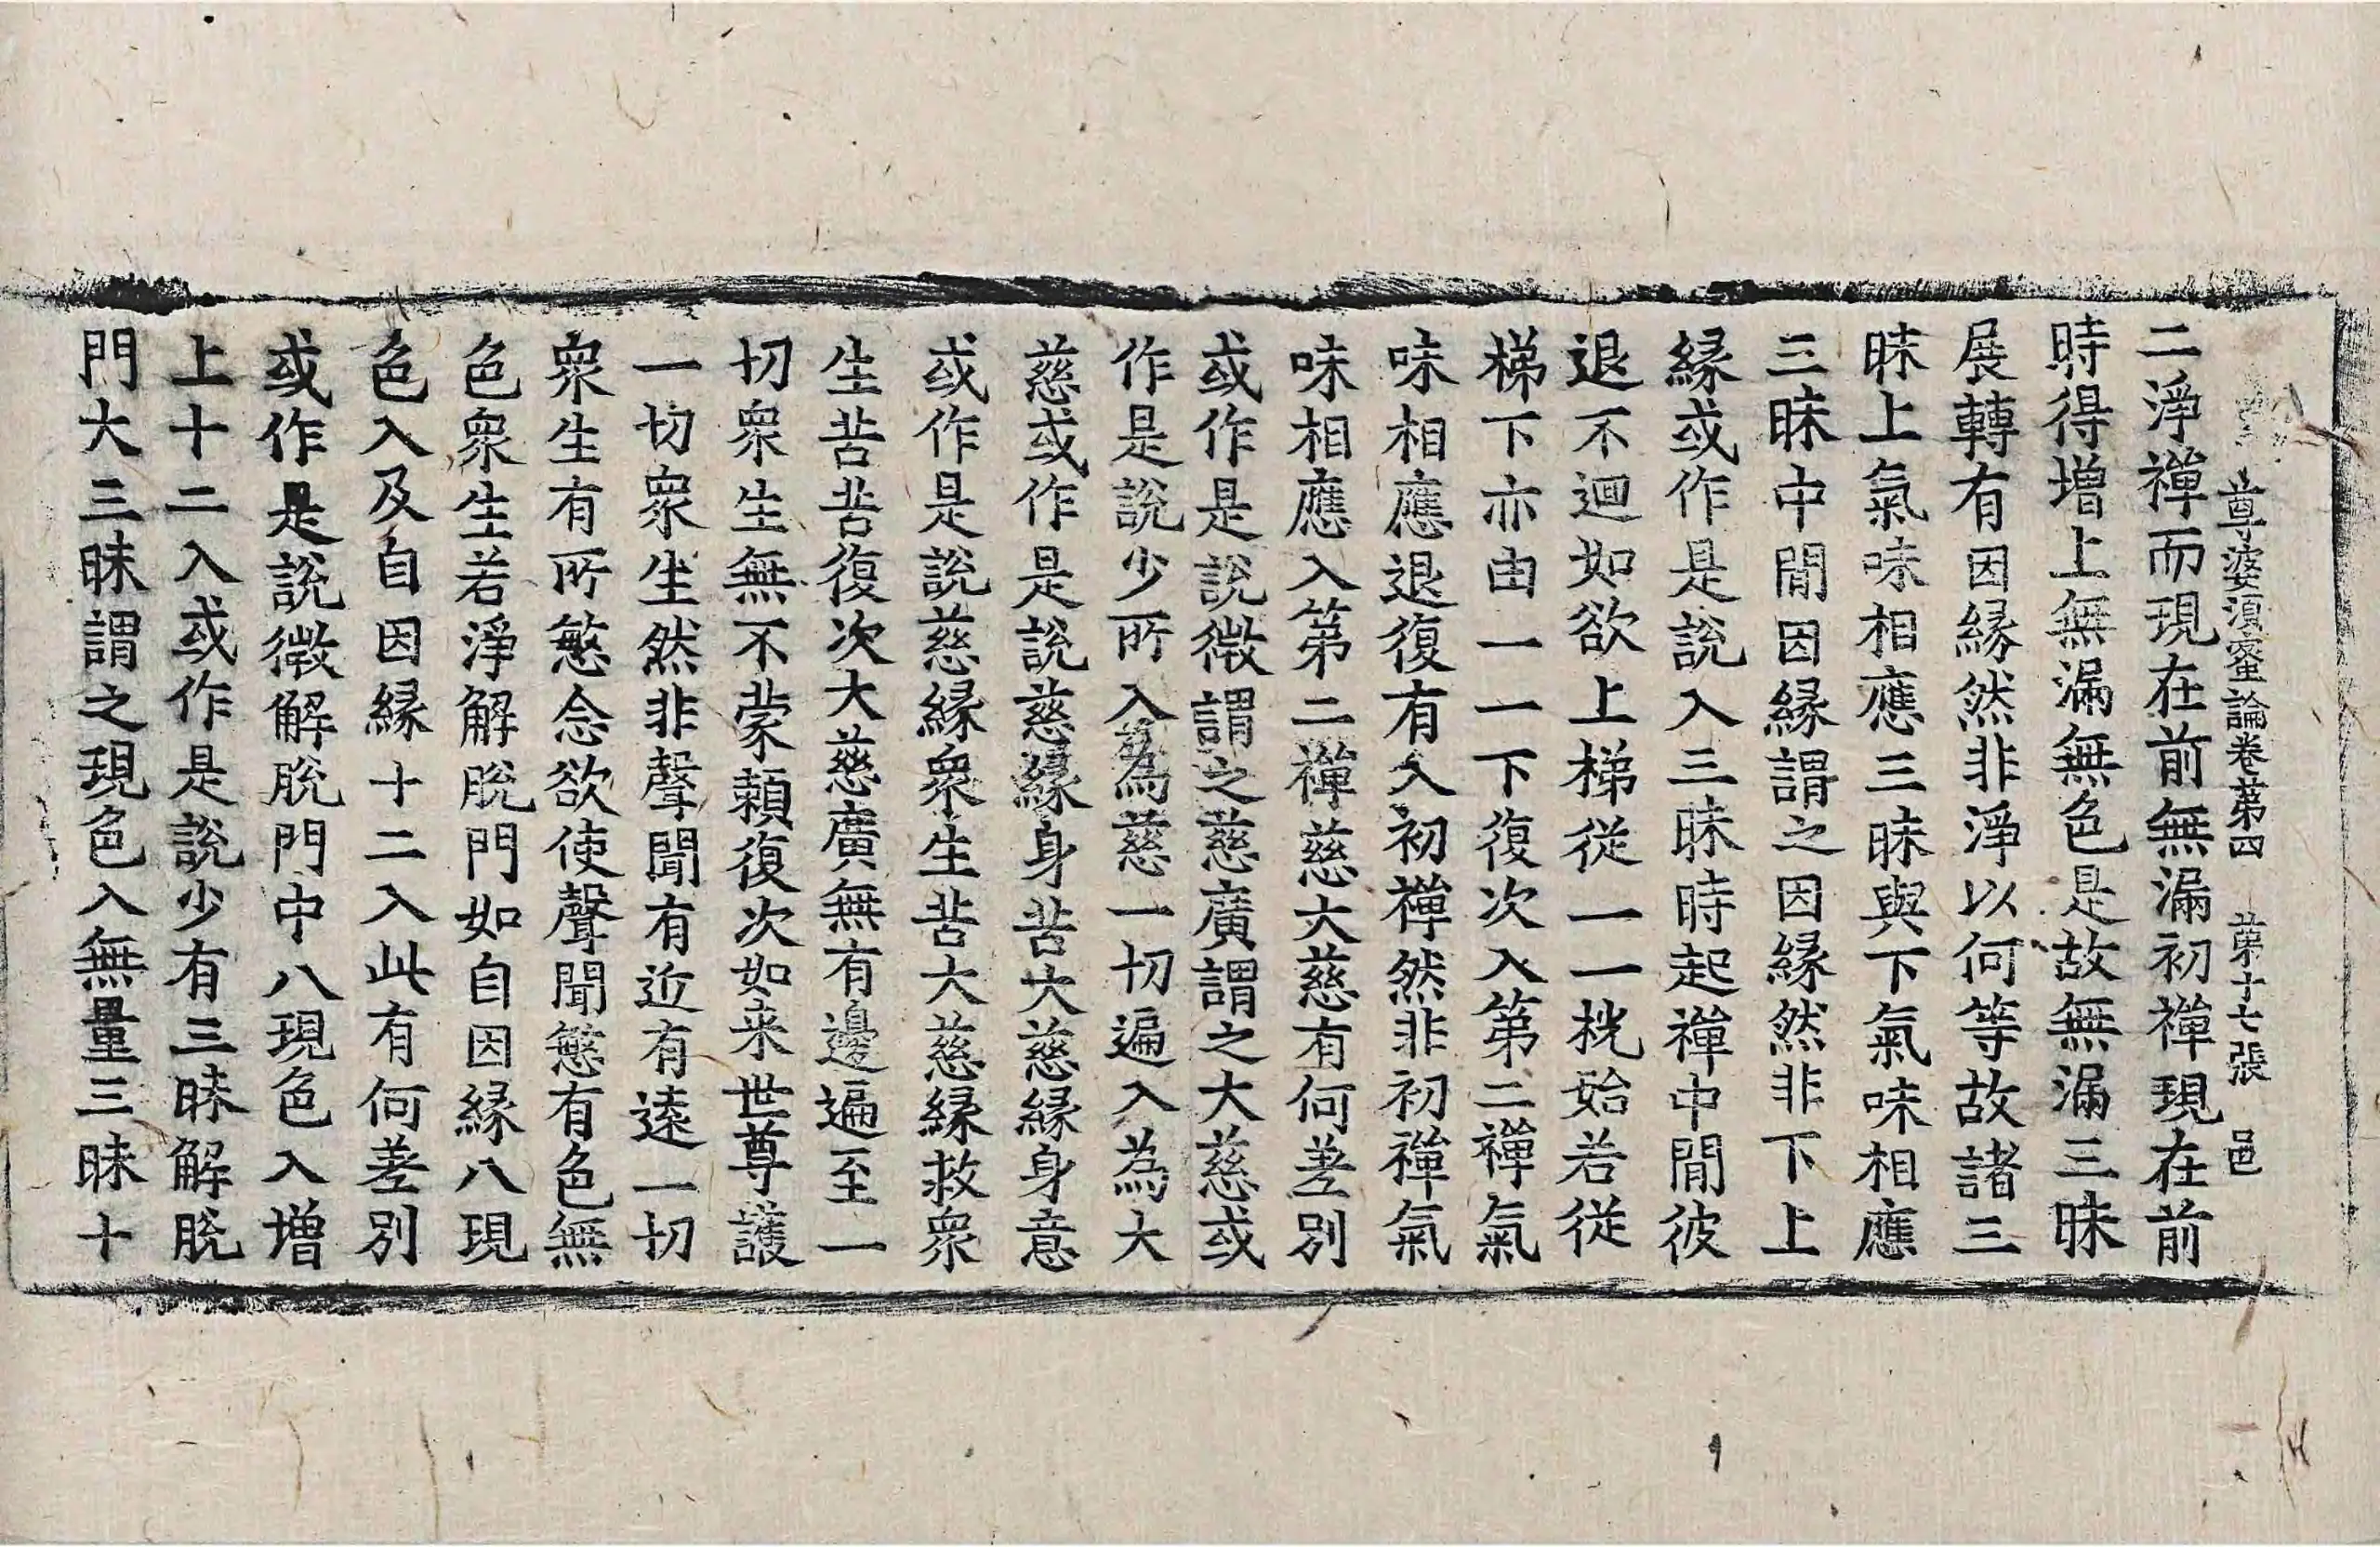 尊婆須蜜論卷第四　第十七張　邑
二淨禪而現在前無漏初禪現在前
時得增上無漏無色是故無漏三昧
展轉有因緣然非淨以何等故諸三
昧上氣味相應三昧與下氣味相應
三昧中間因緣謂之因緣然非下上
緣或作是說入三昧時起禪中間彼
退不迴如欲上梯從一一桄始若從
梯下亦由一一下復次入第二禪氣
味相應退復有入初禪然非初禪氣
味相應入第二禪慈大慈有何差別
或作是說微謂之慈廣謂之大慈或
作是說少所入為慈一切遍入為大
慈或作是說慈緣身苦大慈緣身意
或作是說慈緣衆生苦大慈緣救衆
生苦苦復次大慈廣無有邊遍至一
切衆生無不蒙賴復次如来世尊護
一切衆生然非聲聞有近有遠一切
衆生有所慜念欲使聲聞慜有色無
色衆生若淨解脫門如自因緣八現
色入及自因緣十二入此有何差別
或作是說微解脫門中八現色入增
上十二入或作是說少有三昧解脫
門大三昧謂之現色入無量三昧十